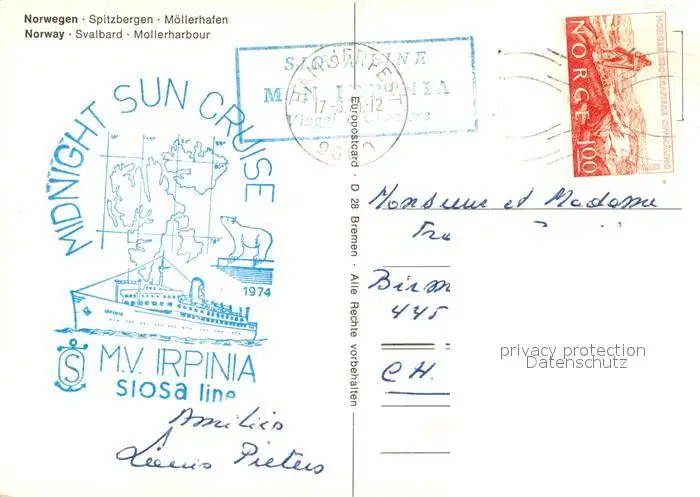 Norwegen · Spitzbergen · Möllerhafen
Norway · Svalbard · Mollerharbour
MIDNIGHT SUN CRUISE
1974
IRPINIA
M.V. IRPINIA
siosa line
Amitiés
Pieters
SIOSA LINE
M/N IRPINIA
Viaggi e Crociere
HAMMERFEST
9600
Europostcard · D 28 Bremen · Alle Rechte vorbehalten
NORGE 100
Monsieur et Madame
Birm
445
CH.
privacy protection
Datenschutz